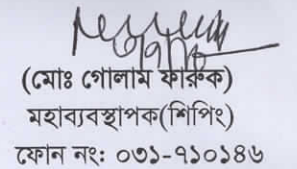 (মোঃ গোলাম ফারুক)
মহাব্যবস্থাপক(শিপিং)
ফোন নং: ০৩১-৭১০১৪৬